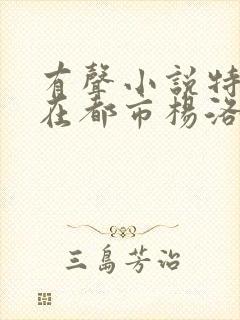 有聲小說特
在都市楊洛
三島芳治